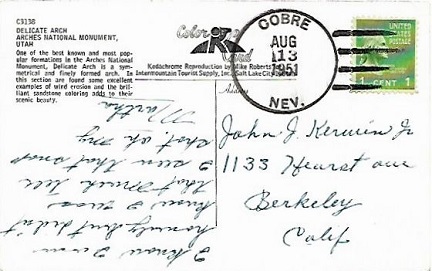 C3138
DELICATE ARCH
ARCHES NATIONAL MONUMENT,
UTAH
One of the best known and most pop-
ular formations in the Arches National
Monument, Delicate Arch is a sym-
metrical and finely formed arch. In
this section are found some excellent
examples of wind erosion and the bril-
liant sandstone coloring adds to their
scenic beauty.
Color
Card
Kodachrome Reproduction by Mike Roberts
Intermountain Tourist Supply, Inc. Salt Lake City
Address
COBRE
AUG
13
1951
NEV.
UNITED
STATES
POSTAGE
1 CENT 1
John J. Kerwin Jr
1133 Hearst ave
Berkeley
Calif
I know I am
homely but didn't
know I was
that much till
I seen that snap
shot. oh my
Martha